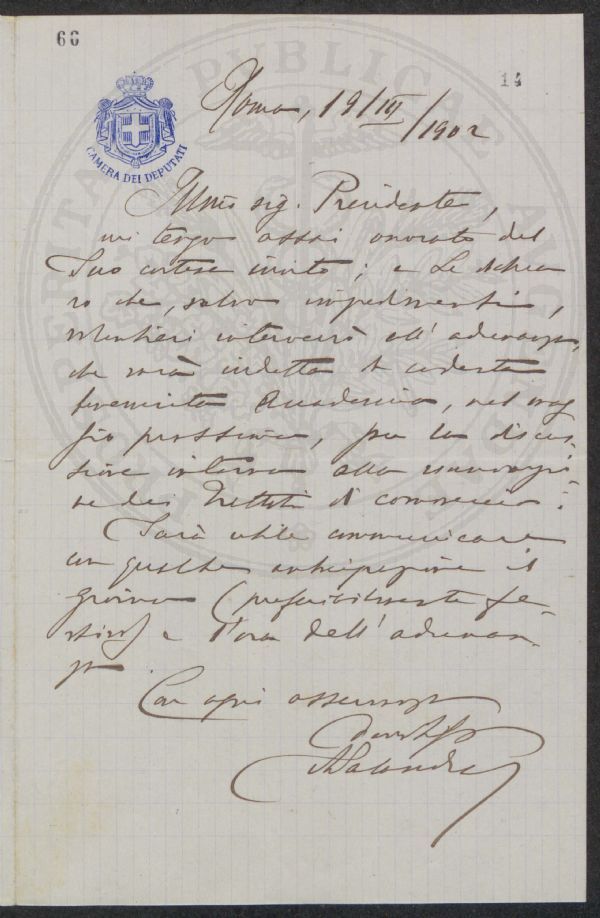 66
14
Roma, 19/III/1902
CAMERA DEI DEPUTATI
Illmo sig. Presidente,
mi tengo assai onorato del
Suo cortese invito; e Le dichia
ro che, salvo impedimenti,
volentieri interverrò all' adunanza,
che sarà indetta da codesta
benemerita Accademia, nel mag
gio prossimo, per la discus
sione intorno alla rinnovazio
ne dei Trattati di commercio.
Sarà utile comunicare
con qualche anticipazione il
giorno (preferibilmente fe-
stivo) e l'ora dell' adunan-
za
Con ogni osservanza
ASalandra